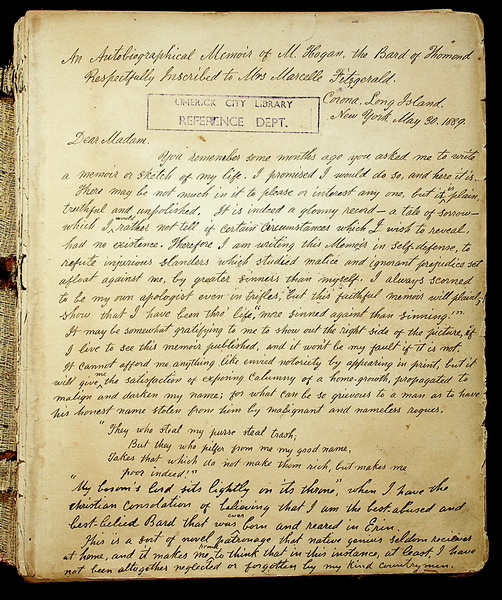 An Autobiographical Memoir of M. Hogan, the Bard of Thomond
Respectfully Inscribed to Mrs Marcella Fitzgerald.
LIMERICK CITY LIBRARY
REFERENCE DEPT.
Corona, Long Island.
New York May 30. 1889.
Dear Madam.
You remember some months ago you asked me to write
a memoir or sketch of my life. I promised I would do so, and here it is.
There may be not much in it to please or interest any one, but it is plain,
truthful and unpolished. It is indeed a gloomy record – a tale of sorrow –
which I would rather not tell if certain circumstances which I wish to reveal
had no existence. Therefore I am writing this Memoir in self-defense, to
refute injurious slanders which studied malice and ignorant prejudice set
afloat against me, by greater sinners than myself. I always scorned
to be my own apologist even in trifles, but this faithful memoir will plainly
show that I have been thro' life, "more sinned against than sinning."
It may be somewhat gratifying to me to show out the right side of the picture, if
I live to see this memoir published, and it won't be my fault if it is not.
It cannot afford me anything like envied notoriety by appearing in print, but it
will give me the satisfaction of exposing calumny of a home-growth, propagated to
malign and darken my name; for what can be so grievous to a man as to have
his honest name stolen from him by malignant and nameless rogues.
"They who steal my purse steal trash;
But they who pilfer from me my good name,
Takes that which do not make them rich, but makes me
poor indeed!"
"My bosom's lord sits lightly on its throne", when I have the
christian consolation of believing that I am the best abused and
best belied Bard that was ever born and reared in Erin.
This is a sort of novel patronage that native genius seldom receives
at home, and it makes me proud to think that in this instance, at least, I have
not been altogether neglected or forgotten by my kind countrymen.